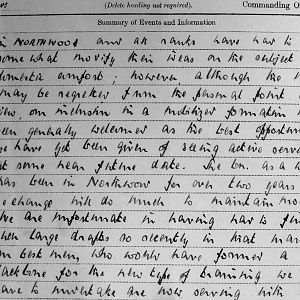 (Delete heading not required).
Commanding O
Summary of Events and Information
in NORTHWOOD and all ranks have had to
somewhat modify their ideas on the subject
domestic comfort; however although the
may be regretted from the personal point
view, our inclusion in a mobilized formation
been generally welcomed as the best opportuni
we have yet been given of seeing active serv
at some near future date. The bn. as a w
has been in Northwood for over two years
change will do much to maintain mor
We are unfortunate in having had to
when large drafts so recently in that many
best men, who would have formed a
backbone for the new type of training we
have to undertake are now serving with